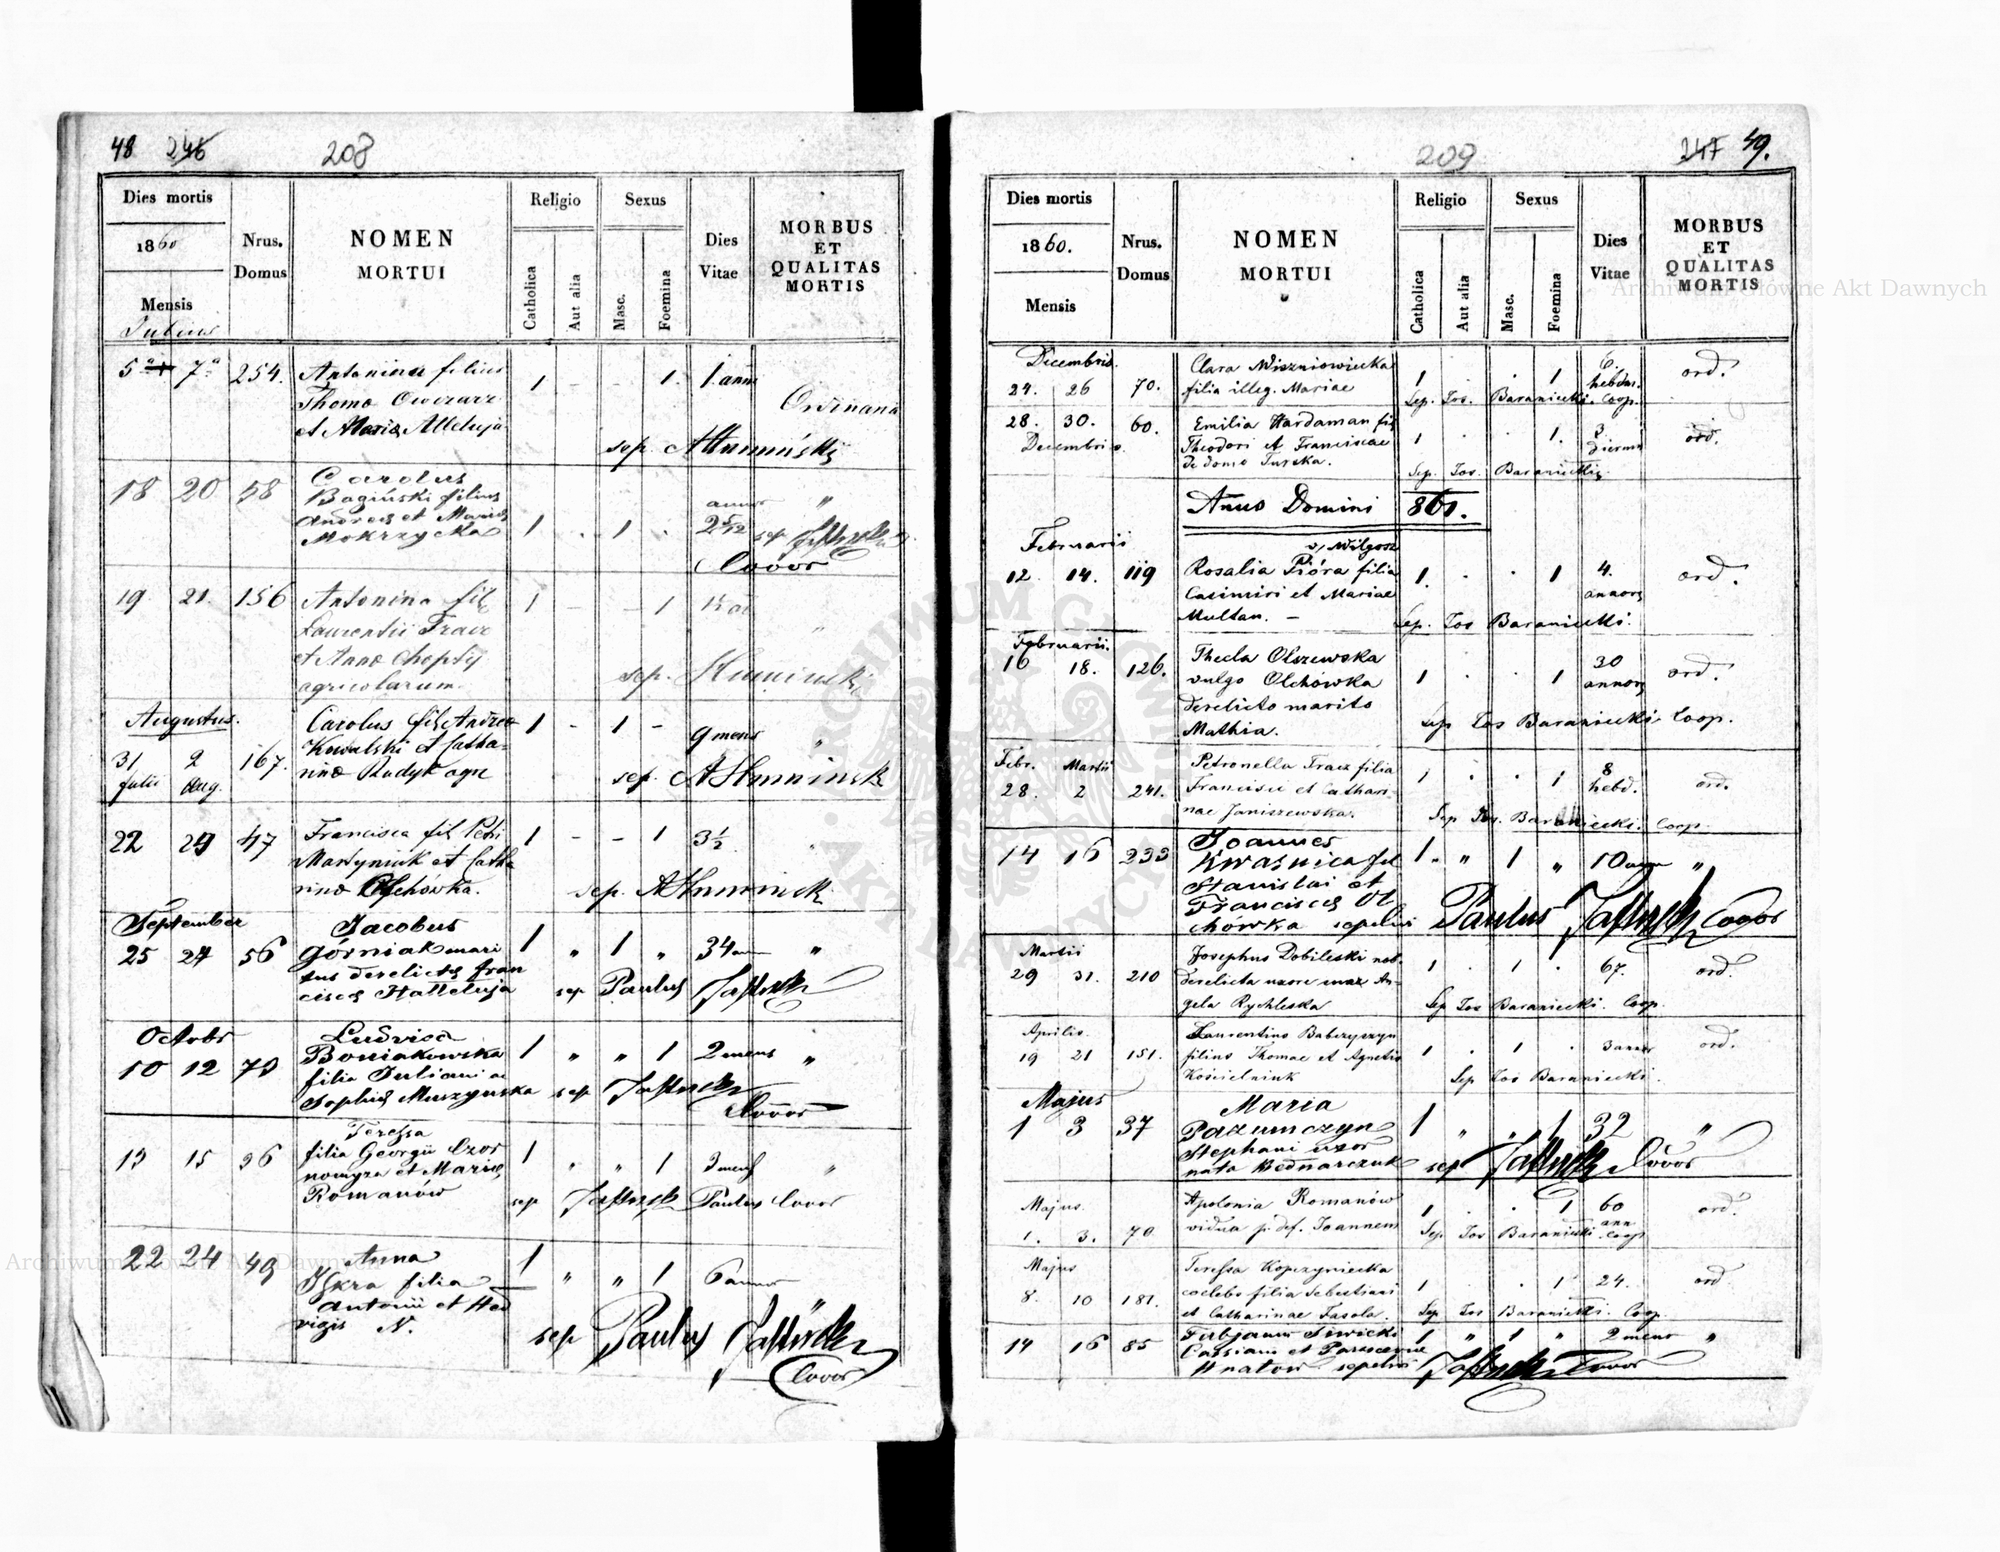 48 246 208
Dies mortis
1860
Mensis
Julius
Nrus.
Domus
NOMEN
MORTUI
Religio
Catholica
Aut alia
Sexus
Masc.
Foemina
Dies
Vitae
MORBUS
ET
QUALITAS
MORTIS
5 7 254. Antonina filius 1 - - 1. 1. anni
Thoma Owczarz Ordinaria
et Maria Alleluja
sep.
18 20 58 Carolus
Bagiński filius annor "
Andreas et Maria 1 . 1 . 2 5/12 sep
Mokrzycka
Coöor
19 21. 156 Antonina fil 1 - - 1
Laurentii Tracz
et Anna Cheptij sep.
agricolarum.
Augustus. Carolus fil Andrea 1 - 1 - 9 mens "
31 2 167. Kowalski et Catha-
Julii Aug. rina Rudyk agr sep.
22 24 47 Francisca fil Petri 1 - - 1 3½ "
Martyniuk et Catha
rina Olchówka. sep.
September Jacobus
25 27 56 Górniak mari 1 " 1 " 34 "
tus derelicta Fran
cisca Halleluja sep Paulus
Octobr Ludvica
10 12 73 Boniakowska 1 " " 1 2 mens "
filia Juliani ac
Sophia Muszyńska sep
Coöor
Teressa
13 15 36 filia Georgii Czor 1 " " 1 3 mens "
nomyza et Maria
Romanów sep Paulus Coöor
22 24 49 Anna 1
Iskra filia " " 1 6
Antonii et Hed
vigis N. sep Paulus
Coöor
209 247 49.
Dies mortis
1860.
Mensis
Nrus.
Domus
NOMEN
MORTUI
Religio
Catholica
Aut alia
Sexus
Masc.
Foemina
Dies
Vitae
MORBUS
ET
QUALITAS
MORTIS
Decembris. Clara Wiszniowiecka 6. ord.
24. 26 70. filia illeg. Mariae 1 . . 1 hebdm.
Sep. Jos. Baraniecki. Coop.
28. 30. 60. Emilia Hardaman fil 3
Decembris Theodori et Franciscae 1 . . 1. dierum ord.
de domo Turska. Sep. Jos. Baraniecki.
Anno Domini 861.
Februarii v, Wilgosz
12. 14. 119 Rosalia Pióra filia 1. . . 1 4. ord.
Casimiri et Mariae annors
Multan. - Sep. Jos Baraniecki.
Februarii.
16 18. 126. Thecla Olszewska 30
vulgo Olchówka 1 . . 1 annors ord.
derelicto marito
Mathia. Sep Jos Baraniecki Coop.
Febr. Martii Petronella Tracz filia 8
28. 2 241. Francisci et Cathari- 1 . . 1 hebd. ord.
nae Janiszewska. Sep Jos. Baraniecki. Coop.
14 16 233 Joannes
Kwaśnica fil 1 . " 1 " 10 "
Stanislai et
Francisca Ol
chówka sepelivi Paulus Coöor
Martii Josephus Dobileski
29 31. 210 derelicta uxore suae An- 1 . 1 . 67. ord.
gela Rychleska Sep Jos Baraniecki. Coop.
Aprilis. Laurentius Babczyszyn
19 21 151. filius Thomae et Agnetis 1 . 1 . 3 annor ord.
Kościelniuk Sep Jos Baraniecki.
Majus Maria
1 3 37 Pazumczyn 1 " " 1 32 "
Stephani uxor
nata Bednarczuk sep Coöor
Majus. Apolonia Romanów 1 . . 1 60 ord.
1. 3. 70 vidua p. def. Joannem Sep Jos Baraniecki ann. Coop
Majus Teressa Kopczyniecka
8. 10 181. coelebs filia Sebestiani 1 . . 1 24. ord
et Catharinae Fasola. Sep Jos Baraniecki. Coop.
14 16 85 Fabjanus Siwicki 1 " 1 " 2 mens "
Cassiani et
Hnatow sepelivi Coöor
Archiwum Główne Akt Dawnych
ARCHIWUM GŁÓWNE AKT DAWNYCH
Archiwum Główne Akt Dawnych